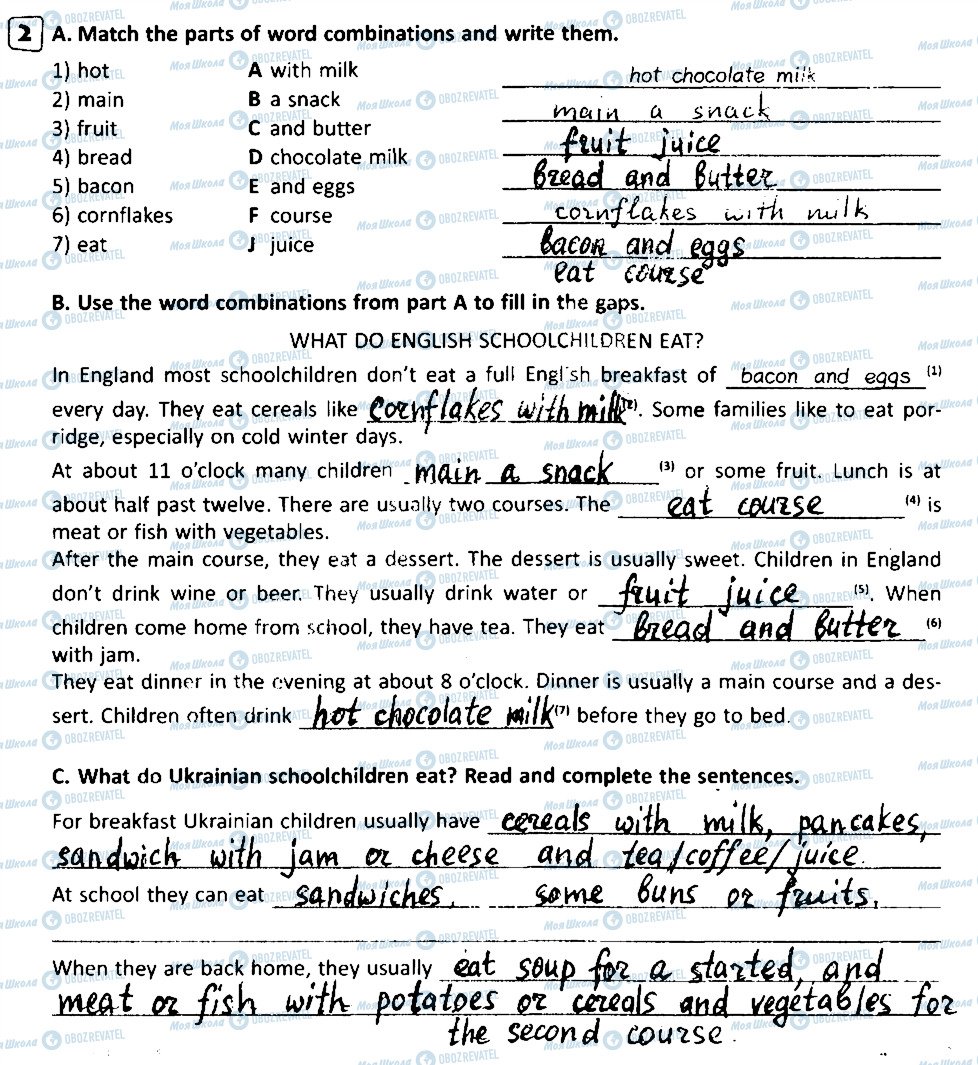 2 A. Match the parts of word combinations and write them.
1) hot A with milk hot chocolate milk
2) main B a snack main a snack
3) fruit C and butter fruit juice
4) bread D chocolate milk bread and butter
5) bacon E and eggs cornflakes with milk
6) cornflakes F course bacon and eggs
7) eat J juice eat course
B. Use the word combinations from part A to fill in the gaps.
WHAT DO ENGLISH SCHOOLCHILDREN EAT?
In England most schoolchildren don't eat a full English breakfast of bacon and eggs (1)
every day. They eat cereals like cornflakes with milk (2). Some families like to eat por-
ridge, especially on cold winter days.
At about 11 o'clock many children main a snack (3) or some fruit. Lunch is at
about half past twelve. There are usually two courses. The eat course (4) is
meat or fish with vegetables.
After the main course, they eat a dessert. The dessert is usually sweet. Children in England
don't drink wine or beer. They usually drink water or fruit juice (5). When
children come home from school, they have tea. They eat bread and butter (6)
with jam.
They eat dinner in the evening at about 8 o'clock. Dinner is usually a main course and a des-
sert. Children often drink hot chocolate milk (7) before they go to bed.
C. What do Ukrainian schoolchildren eat? Read and complete the sentences.
For breakfast Ukrainian children usually have cereals with milk, pancakes,
sandwich with jam or cheese and tea/coffee/juice.
At school they can eat sandwiches, some buns or fruits.
When they are back home, they usually eat soup for a started, and
meat or fish with potatoes or cereals and vegetables for
the second course.